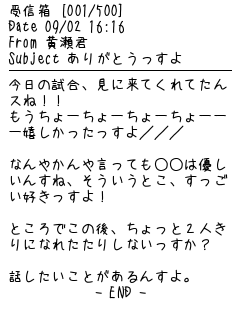 受信箱 [001/500]
Date 09/02 16:16
From 黄瀬君
Subject ありがとうっすよ
今日の試合、見に来てくれてたん
スね！！
もうちょーちょーちょーちょーー
ー嬉しかったっすよ///
なんやかんや言っても〇〇は優し
いんすね、そういうとこ、すっご
い好きっすよ！
ところでこの後、ちょっと2人き
りになれたたりしないっすか？
話したいことがあるんすよ。
- END -